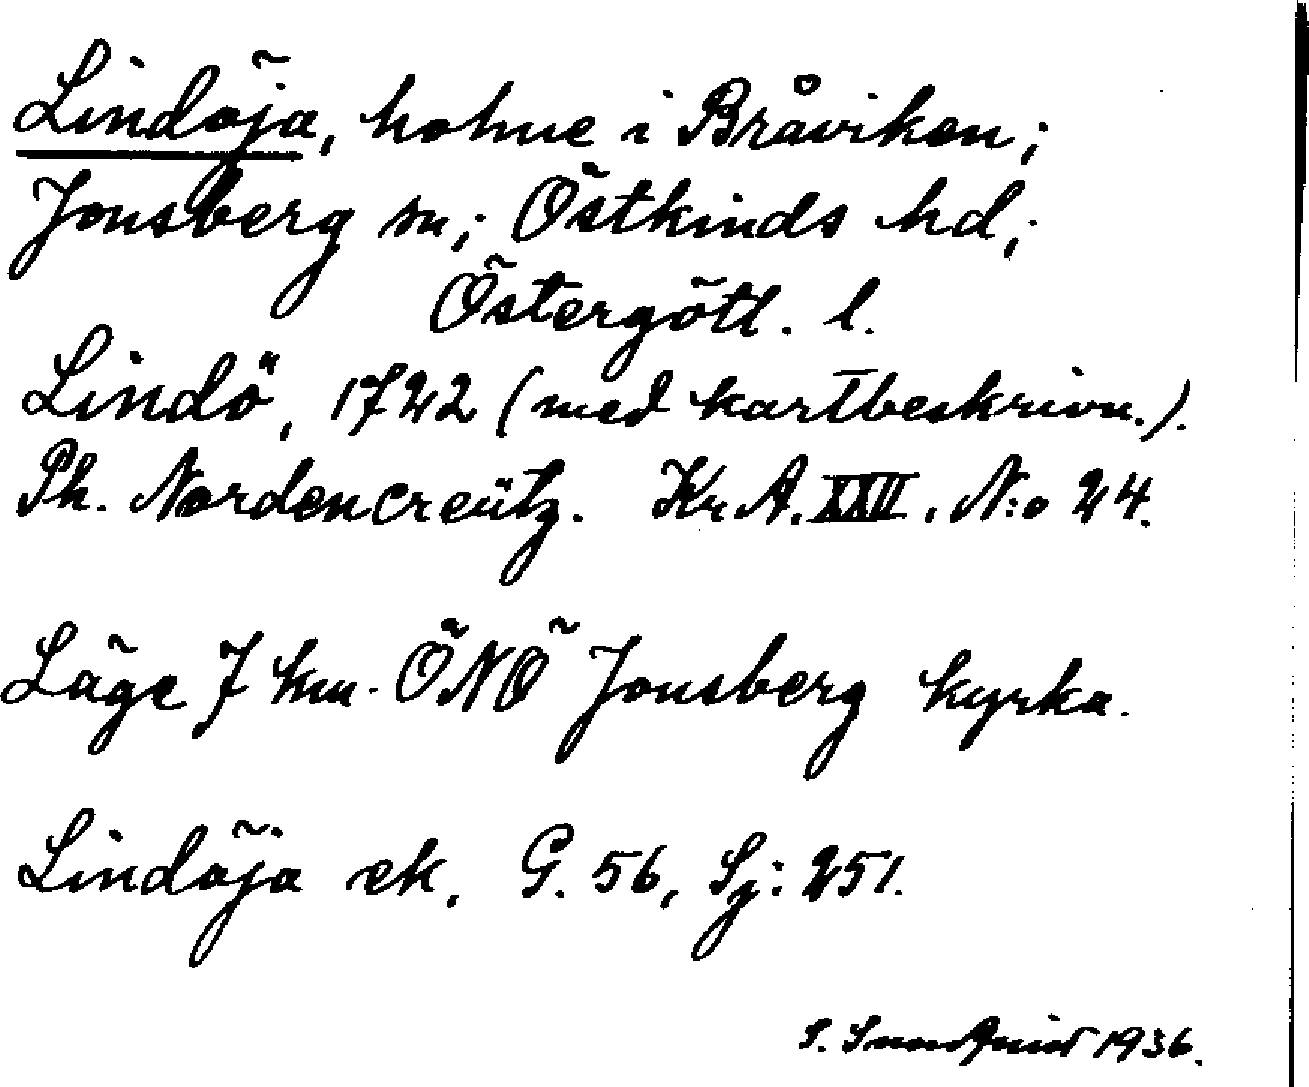 Lindöja, holme i Bråviken;
Jonsberg sn; Östkinds hd;
Östergötl. l.
Lindö, 1722 (med kartbeskrivn.).
Ph. Nordencreütz. Kr.A. XXII. N:o 24.
Läge 7 km. ÖNÖ Jonsberg kyrka.
Lindöja ek. G. 56, Sj: 251.
S. 1936.